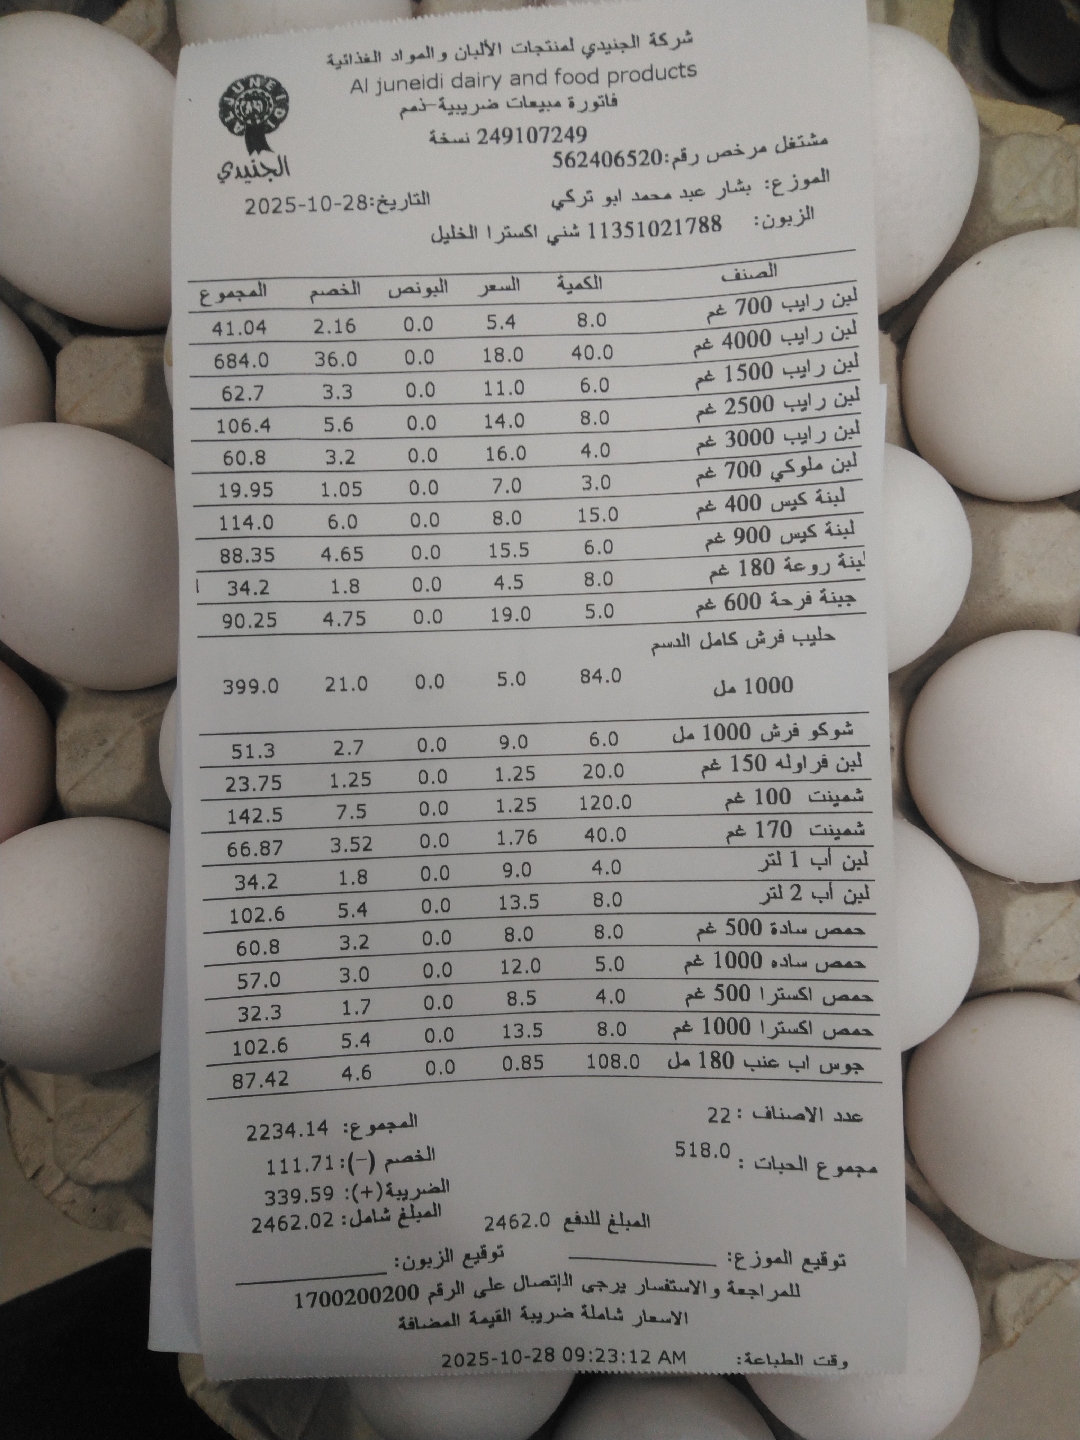 شركة الجنيدي لمنتجات الألبان والمواد الغذائية
Al juneidi dairy and food products
AL JUNEIDI
الجنيدي
فاتورة مبيعات ضريبية-ذمم
249107249 نسخة
مشتغل مرخص رقم:562406520
الموزع: بشار عبد محمد ابو تركي التاريخ:2025-10-28
الزبون: 11351021788 شني اكسترا الخليل
الصنف الكمية السعر البونص الخصم المجموع
لبن رايب 700 غم 8.0 5.4 0.0 2.16 41.04
لبن رايب 4000 غم 40.0 18.0 0.0 36.0 684.0
لبن رايب 1500 غم 6.0 11.0 0.0 3.3 62.7
لبن رايب 2500 غم 8.0 14.0 0.0 5.6 106.4
لبن رايب 3000 غم 4.0 16.0 0.0 3.2 60.8
لبن ملوكي 700 غم 3.0 7.0 0.0 1.05 19.95
لبنة كيس 400 غم 15.0 8.0 0.0 6.0 114.0
لبنة كيس 900 غم 6.0 15.5 0.0 4.65 88.35
لبنة روعة 180 غم 8.0 4.5 0.0 1.8 34.2
جبنة فرحة 600 غم 5.0 19.0 0.0 4.75 90.25
حليب فرش كامل الدسم
1000 مل 84.0 5.0 0.0 21.0 399.0
شوكو فرش 1000 مل 6.0 9.0 0.0 2.7 51.3
لبن فراوله 150 غم 20.0 1.25 0.0 1.25 23.75
شمينت 100 غم 120.0 1.25 0.0 7.5 142.5
شمينت 170 غم 40.0 1.76 0.0 3.52 66.87
لبن أب 1 لتر 4.0 9.0 0.0 1.8 34.2
لبن أب 2 لتر 8.0 13.5 0.0 5.4 102.6
حمص سادة 500 غم 8.0 8.0 0.0 3.2 60.8
حمص ساده 1000 غم 5.0 12.0 0.0 3.0 57.0
حمص اكسترا 500 غم 4.0 8.5 0.0 1.7 32.3
حمص اكسترا 1000 غم 8.0 13.5 0.0 5.4 102.6
جوس اب عنب 180 مل 108.0 0.85 0.0 4.6 87.42
عدد الاصناف : 22 المجموع: 2234.14
مجموع الحبات : 518.0 الخصم (-): 111.71
الضريبة(+): 339.59
المبلغ للدفع 2462.0 المبلغ شامل: 2462.02
توقيع الموزع: توقيع الزبون:
للمراجعة والاستفسار يرجى الإتصال على الرقم 1700200200
الاسعار شاملة ضريبة القيمة المضافة
وقت الطباعة: 2025-10-28 09:23:12 AM